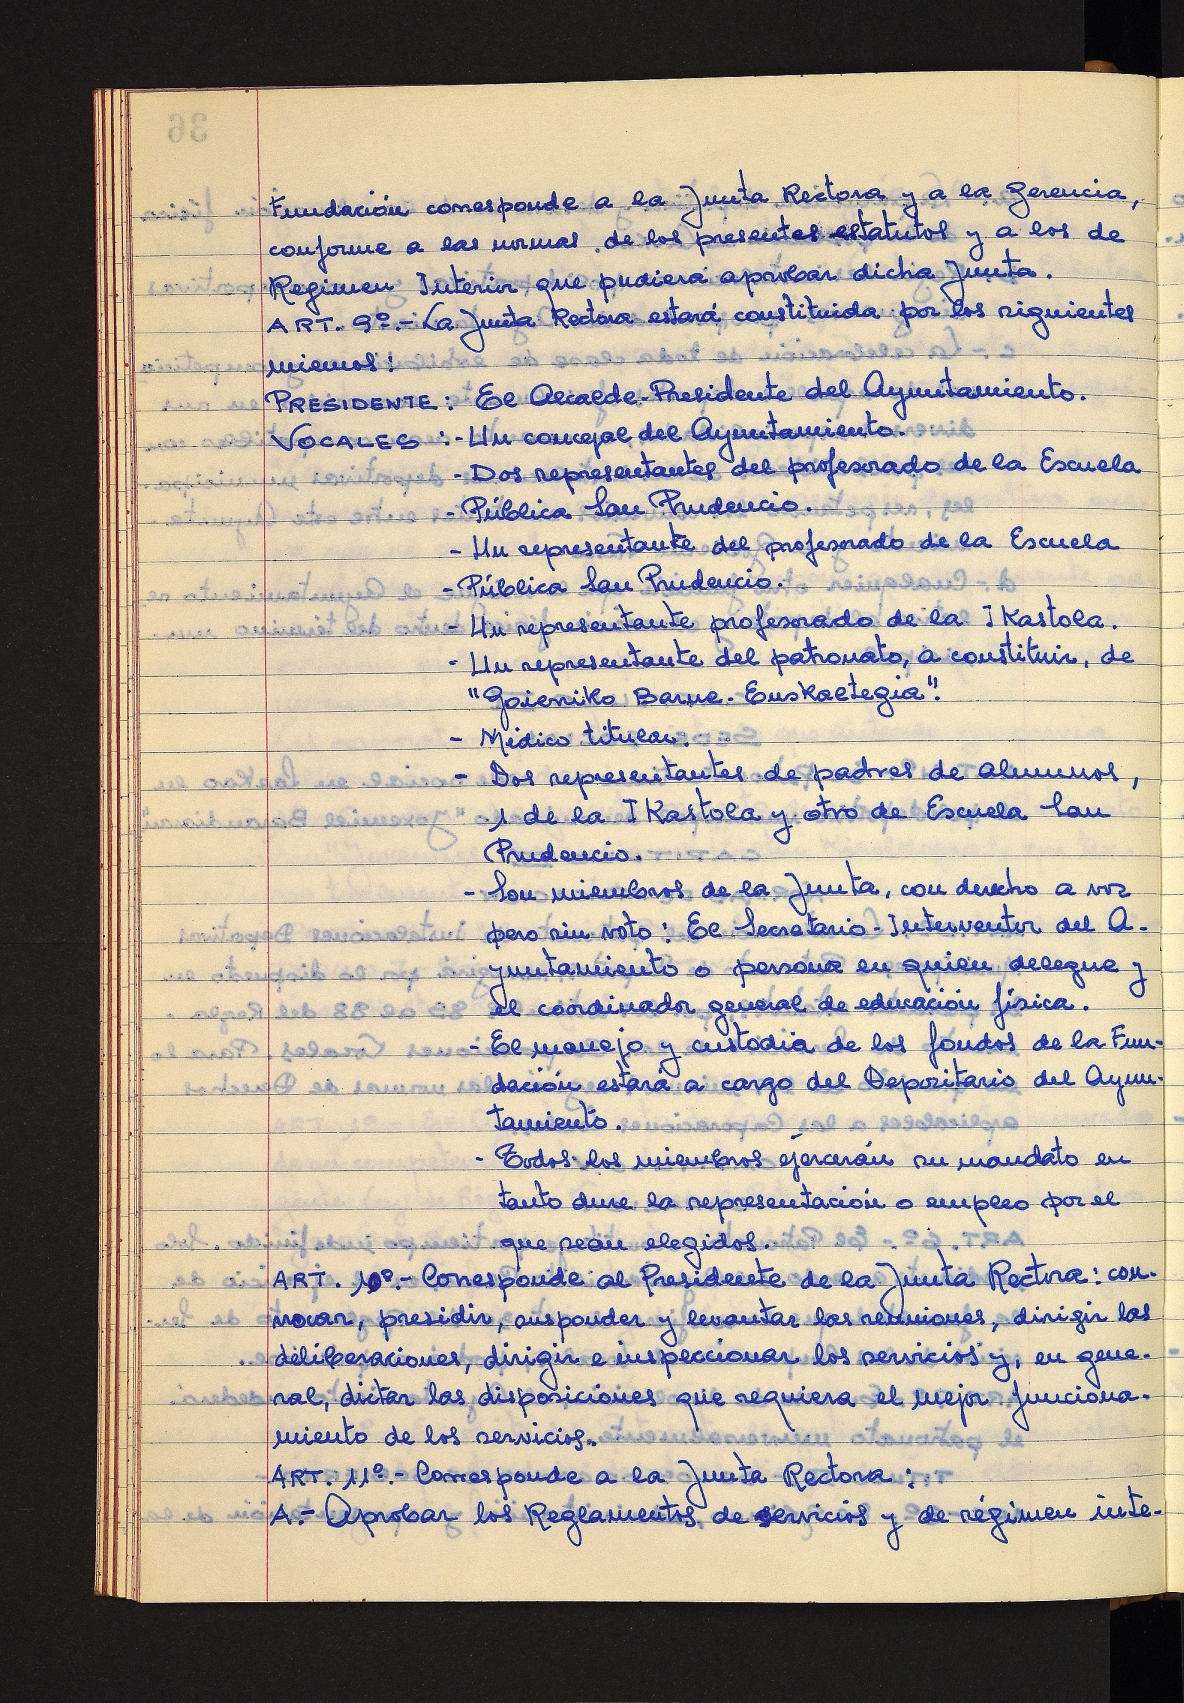 Fundación corresponde a la Junta Rectora y a la Gerencia,
conforme a las normas de los presentes estatutos y a los de
Regimen Interior que pudiera aprobar dicha Junta.
ART. 9º.- La Junta Rectora estará constituida por los siguientes
miemos:
PRESIDENTE: El Alcalde-Presidente del Ayuntamiento.
VOCALES :- Un concejal del Ayuntamiento.
- Dos representantes del profesorado de la Escuela
- Pública San Prudencio.
- Un representante del profesorado de la Escuela
- Pública San Prudencio.
- Un representante profesorado de la IKastola.
- Un representante del patronato, a constituir, de
"Goierriko Barne-Euskaltegia".
- Médico titular.
- Dos representantes de padres de alumnos,
1 de la IKastola y otro de Escuela San
Prudencio.
- Son miembros de la Junta, con derecho a voz
pero sin voto: El Secretario-Interventor del A-
yuntamiento o persona en quien delegue y
el coordinador general de educación física.
- El manejo y custodia de los fondos de la Fun-
dación estará a cargo del Depositario del Ayun-
tamiento.
- Todos los miembros ejercerán su mandato en
tanto dure la representación o empleo por el
que sean elegidos.
ART. 10º.- Corresponde al Presidente de la Junta Rectora: con-
vocar, presidir, suspender y levantar las reuniones, dirigir las
deliberaciones, dirigir e inspeccionar los servicios y, en gene-
ral, dictar las disposiciones que requiera el mejor funciona-
miento de los servicios.
ART. 11º.- Corresponde a la Junta Rectora:
A.- Aprobar los Reglamentos de servicios y de régimen inte-